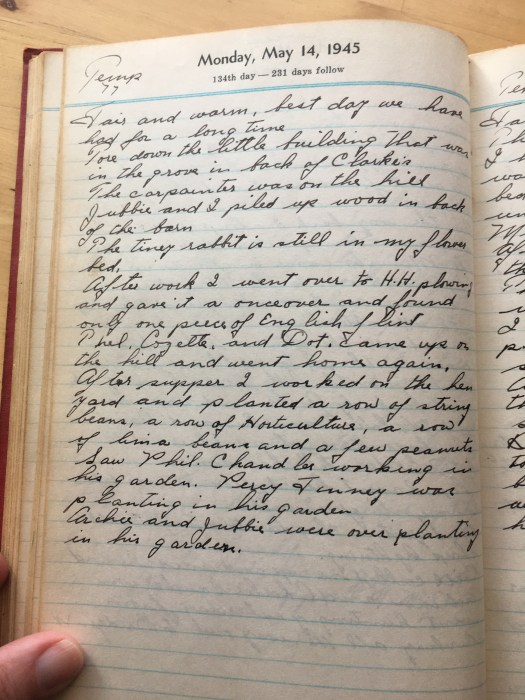 Monday, May 14, 1945
134th day — 231 days follow
Temp
77
Fair and warm, best day we have
had for a long time
Tore down the little building that was
in the grove in back of Clarke's
The carpainter was on the hill
Jubbie and I piled up wood in back
of the barn
The tiney rabbit is still in my flower
bed.
After work I went over to H.H. plowing
and gave it a onceover and found
only one peece of English flint
Phil, Cozette, and Dot. came up on
the hill and went home again.
After supper I worked on the hen
yard and planted a row of string
beans, a row of Horticulture, a row
of lima beans and a few peanuts
Saw Phil. Chandler working in
his garden. Percy Finney was
planting in his garden
Archie and Jubbie were over planting
in his garden.